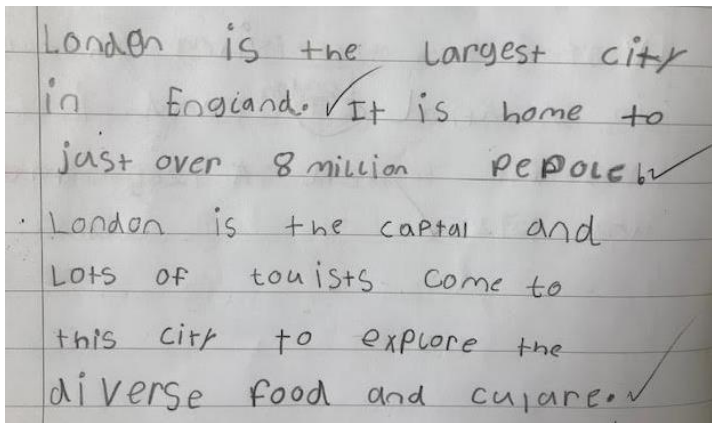 London is the largest city
in England. It is home to
just over 8 million pepole
London is the captal and
Lots of touists come to
this city to explore the
diverse food and cujare.